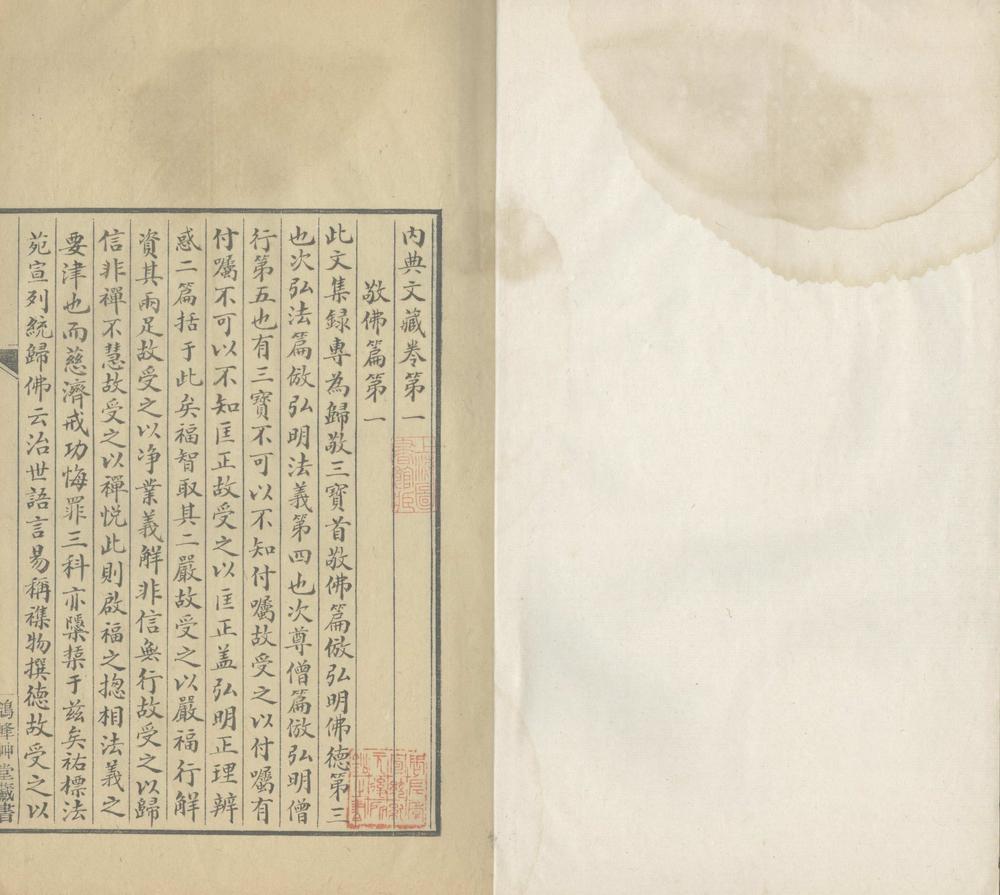 內典文藏卷第一
敬佛篇第一
此文集録專為歸敬三寶首敬佛篇倣弘明佛德第三
也次弘法篇倣弘明法義第四也次尊僧篇倣弘明僧
行第五也有三寶不可以不知付囑故受之以付囑有
付囑不可以不知匡正故受之以匡正盖弘明正理辨
惑二篇括于此矣福智取其二嚴故受之以嚴福行解
資其兩足故受之以净業義解非信無行故受之以歸
信非禪不慧故受之以禪悦此則啟福之揔相法義之
要津也而慈濟戒功悔罪三科亦櫽栝于兹矣祐標法
苑宣列統歸佛云治世語言易稱襍物撰德故受之以
鴿峰艸堂藏書